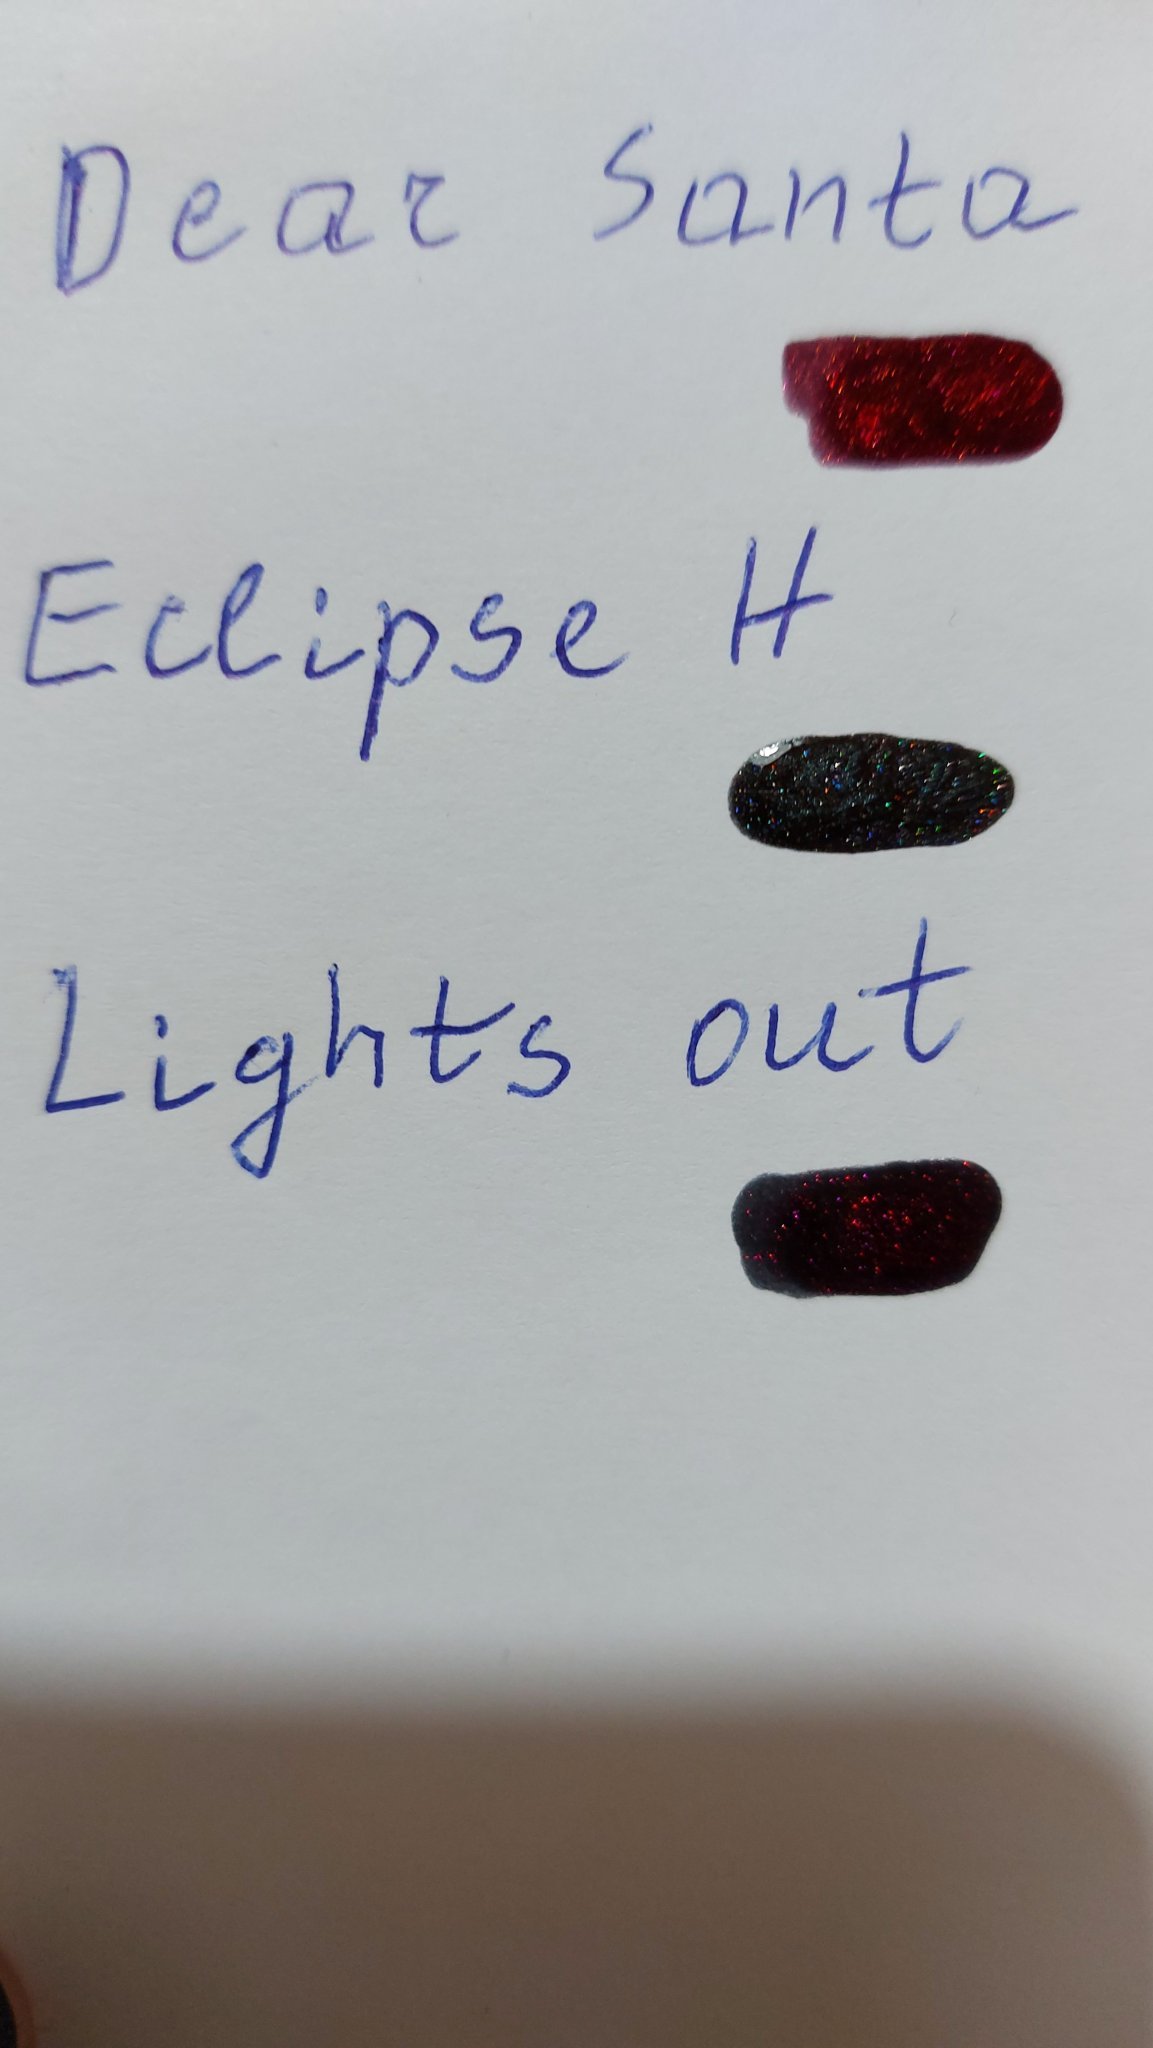 Dear Santa
Eclipse H
Lights out